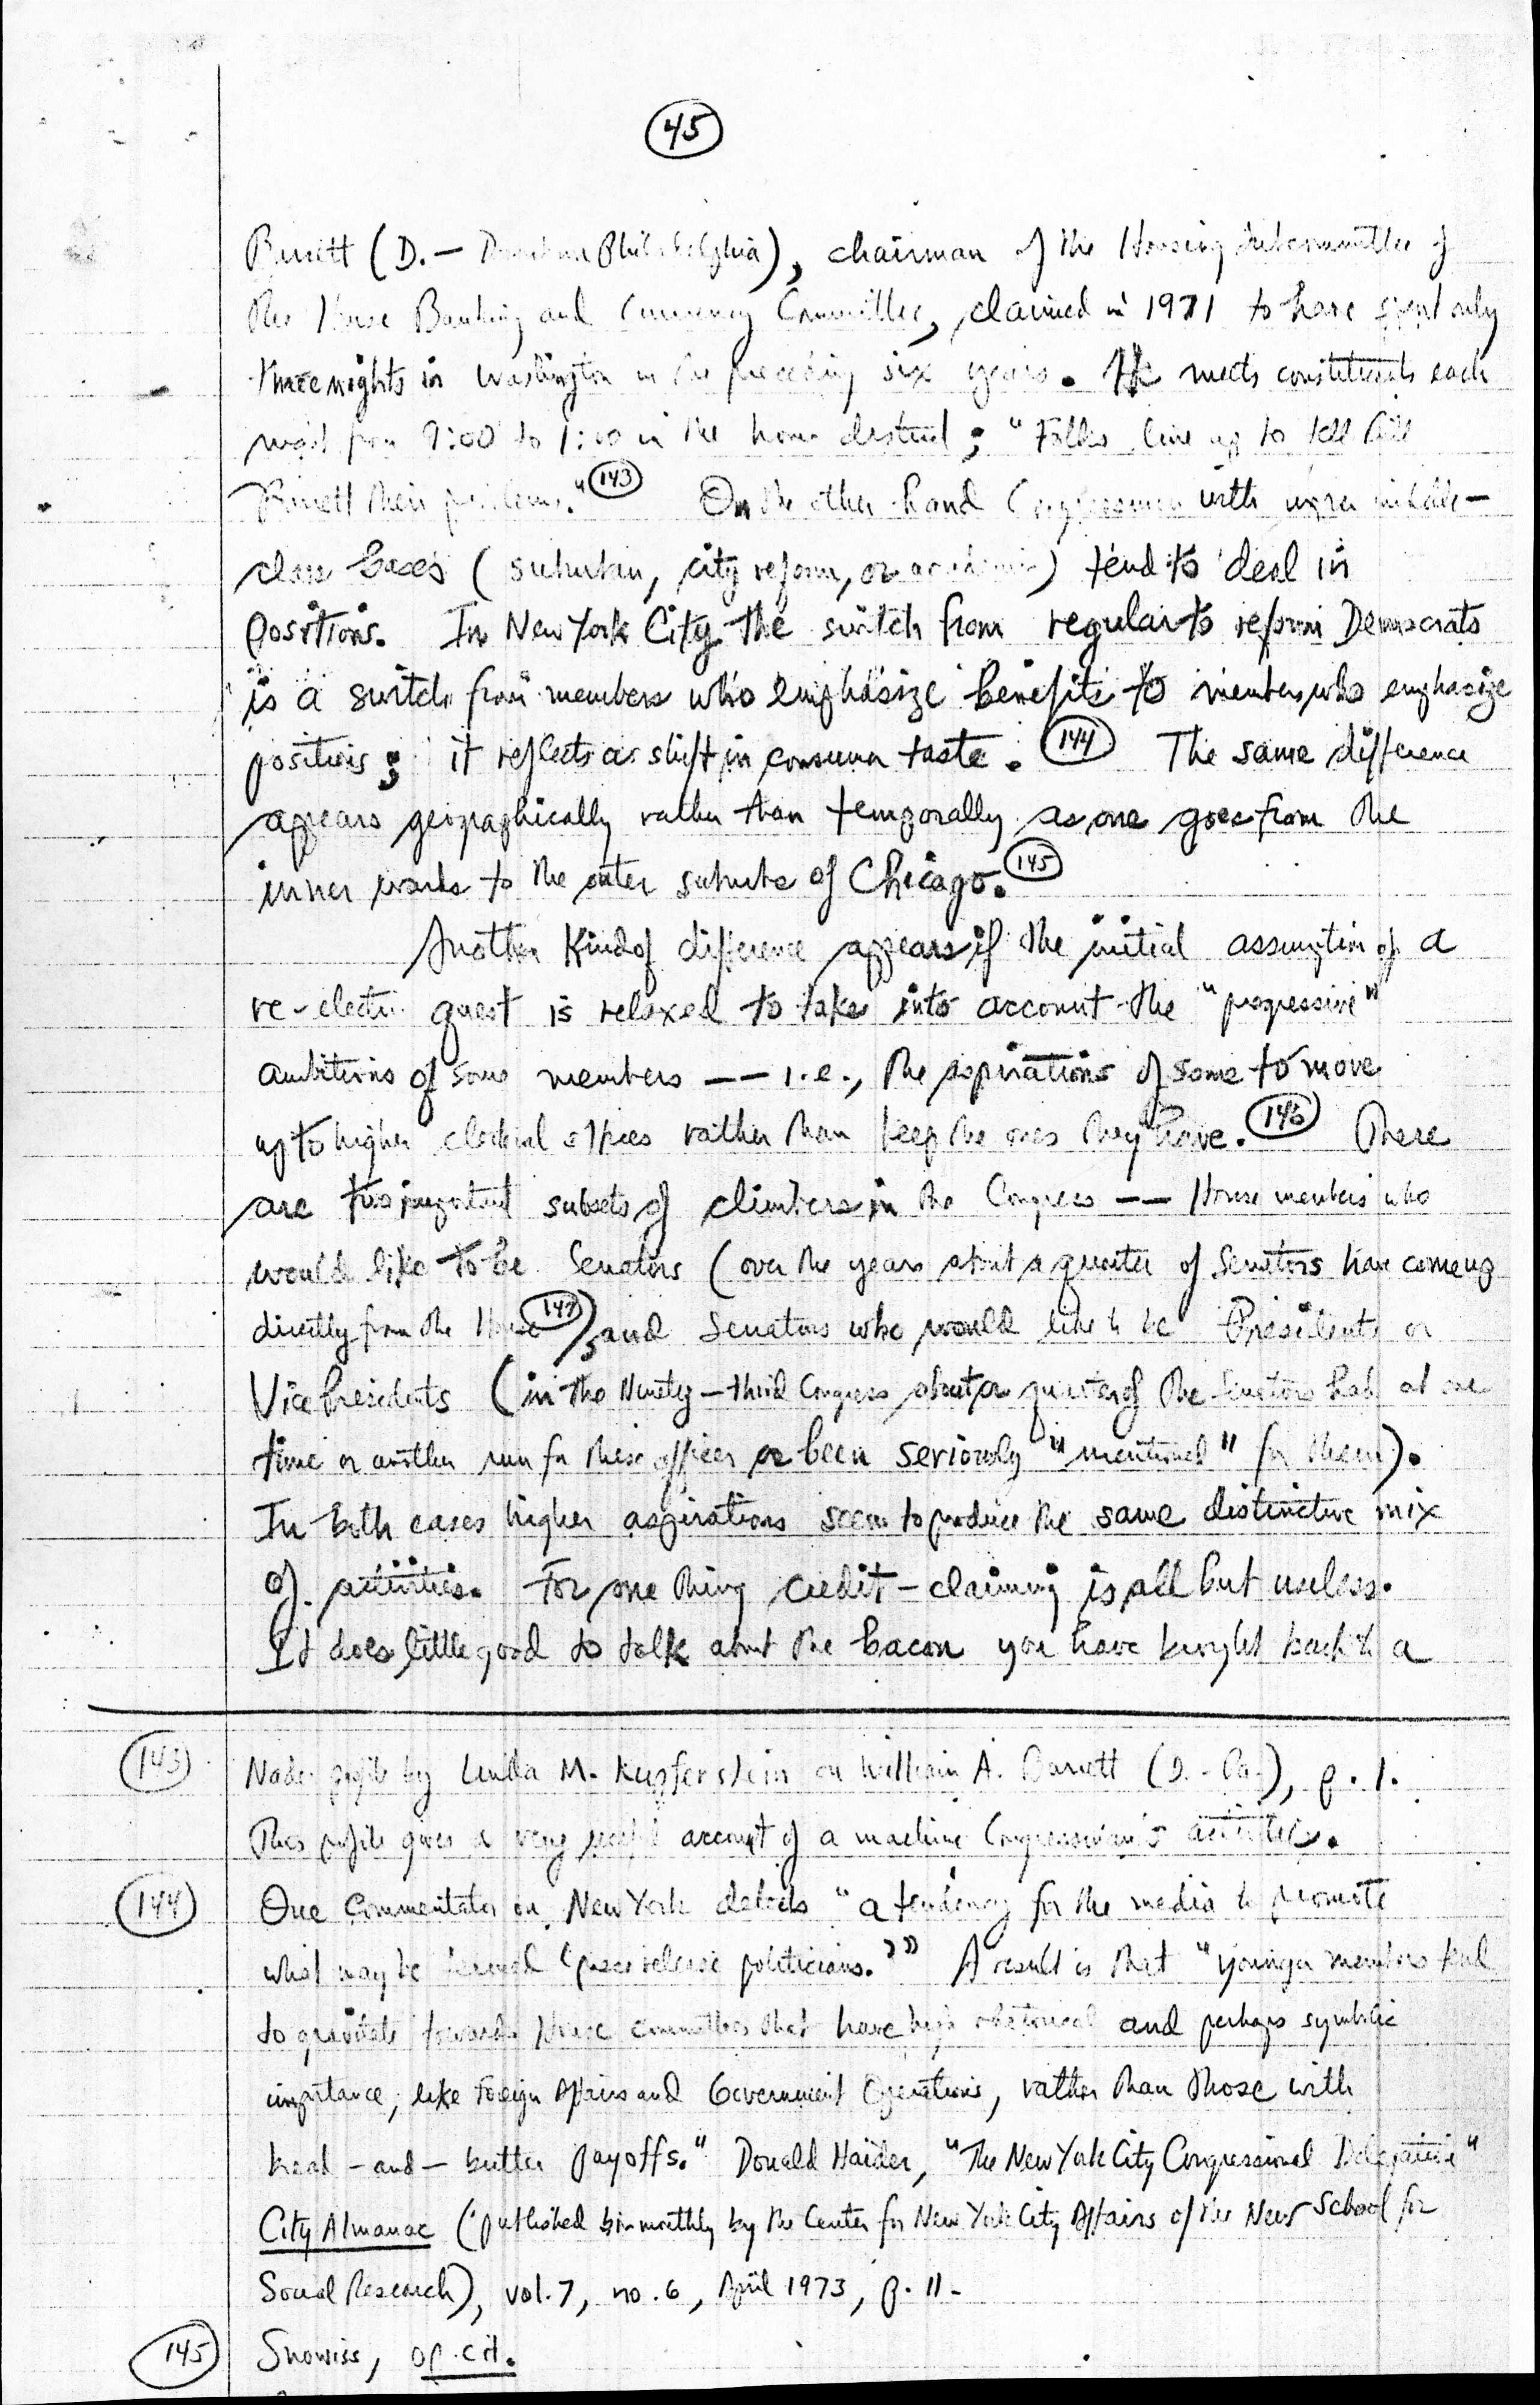 45
Barrett (D. — Downtown Philadelphia), chairman of the Housing Subcommittee of
the House Banking and Currency Committee, claimed in 1971 to have spent only
three nights in Washington in the preceding six years. He meets constituents each
night from 9:00 to 1:00 in the home district; "Folks line up to tell Bill
Barrett their problems." 143 On the other hand Congressmen with more middle-
class bases (suburban, city reform, or academic) tend to deal in
positions. In New York City the switch from regular to reform Democrats
is a switch from members who emphasize benefits to members who emphasize
positions; it reflects a shift in consumer taste. 144 The same difference
appears geographically rather than temporally as one goes from the
inner wards to the outer suburbs of Chicago. 145
Another kind of difference appears if the initial assumption of a
re-election quest is relaxed to take into account the "progressive"
ambitions of some members -- i.e., the aspirations of some to move
up to higher electoral offices rather than keep the ones they have. 146 There
are two important subsets of climbers in the Congress -- House members who
would like to be Senators (over the years about a quarter of Senators have come up
directly from the House 147), and Senators who would like to be Presidents or
Vice Presidents (in the Ninety-third Congress about a quarter of the Senators had at one
time or another run for these offices or been seriously "mentioned" for them).
In both cases higher aspirations seem to produce the same distinctive mix
of activities. For one thing credit-claiming is all but useless.
It does little good to talk about the bacon you have brought back to a
143 Nader profile by Linda M. Kupferstein on William A. Barrett (D.-Pa.), p. 1.
This profile gives a very useful account of a machine Congressman's activities.
144 One commentator on New York detects "a tendency for the media to promote
what may be termed 'press release politicians.'" A result is that "younger members tend
to gravitate towards House committees that have high rhetorical and perhaps symbolic
importance, like Foreign Affairs and Government Operations, rather than those with
bread-and-butter payoffs." Donald Haider, "The New York City Congressional Delegation"
City Almanac (published bi-monthly by the Center for New York City Affairs of the New School for
Social Research), vol. 7, no. 6, April 1973, p. 11.
145 Snowiss, op. cit.